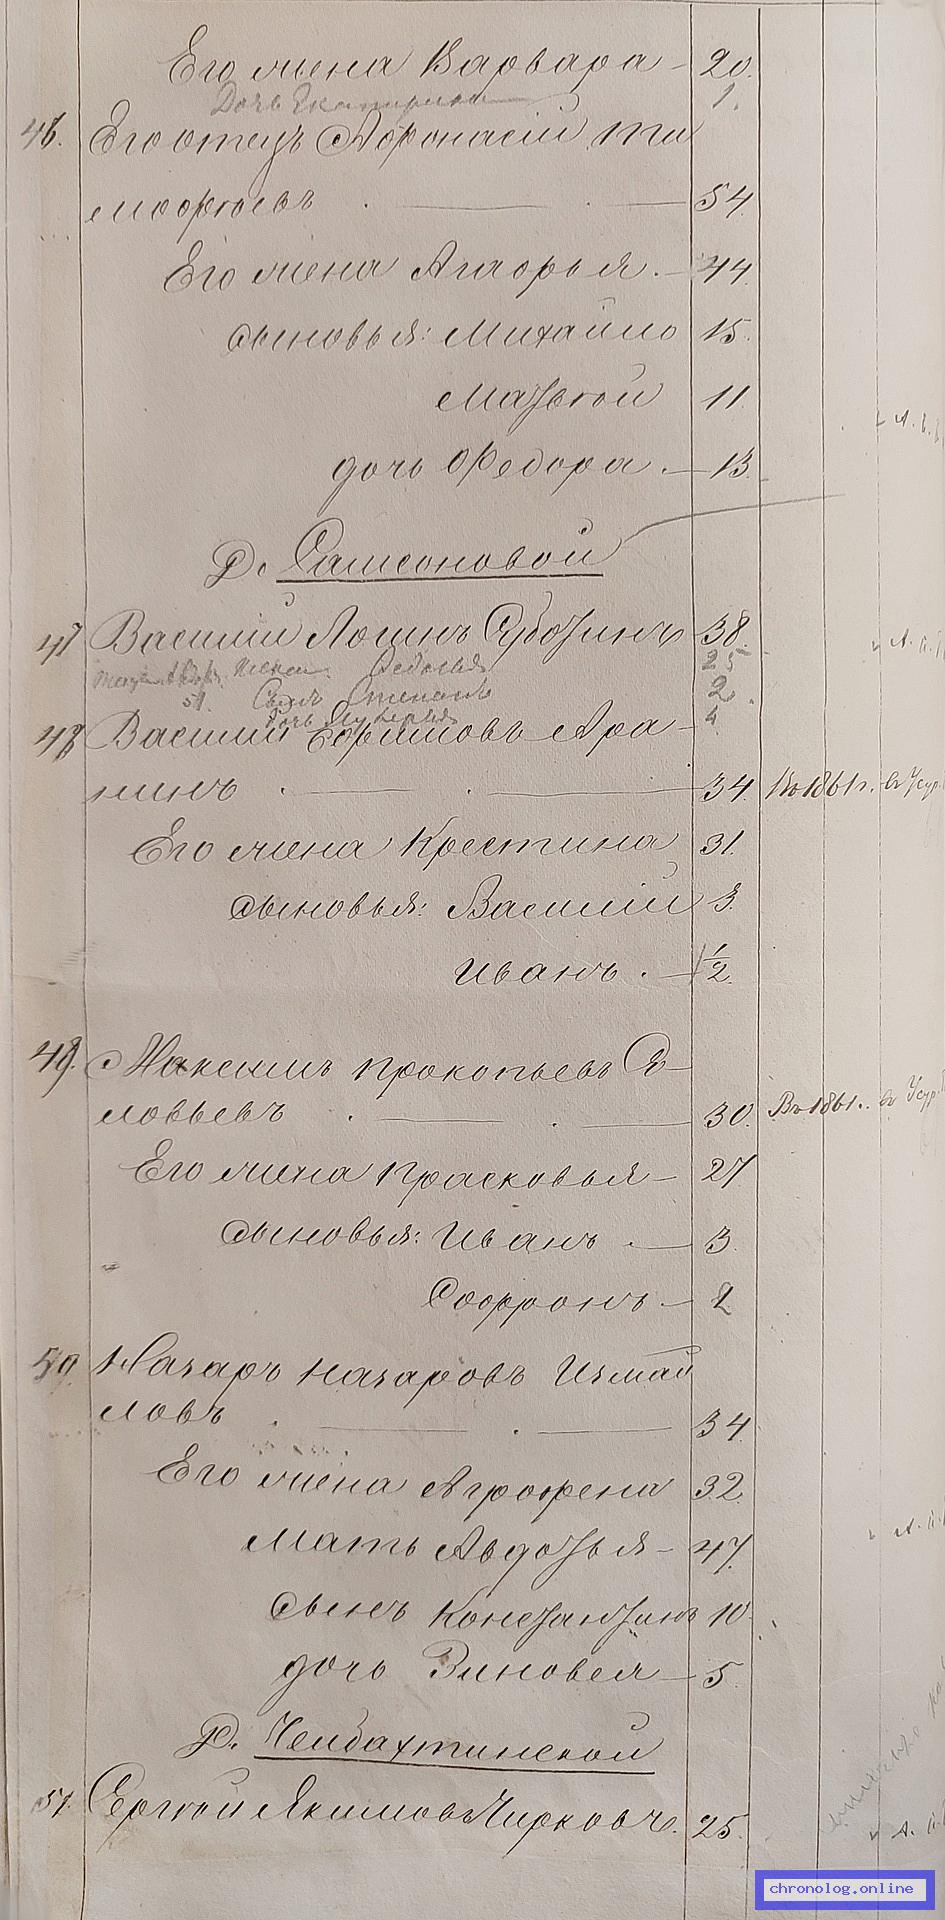 Его жена Варвара - 20.
Дочь Екатерина 1.
46. Его отецъ Афонасiй Ти
мофѣевъ . — . — 54
Его жена Агафья . — 44
сыновья: Михайло 15.
Матвѣй 11
дочь Федора . — 13.
Д. Самсоновой
47 Василiй Логинъ Субботинъ 38.
Федосья 25
51. Сынъ Степанъ 2.
Дочь Лукерья 4
48 Василiй Ефимовъ Ара-
нинъ . — . — 34. Въ 1861 г. въ Усур.
Его жена Крестина 31.
сыновья: Василiй 3.
Иванъ . — 1/2.
49. Максимъ Прокопьевъ Со-
ловьевъ . — . — 30. Въ 1861. въ Усур.
Его жена Прасковья — 27
Сыновья: Иванъ . — 3.
Софронъ — 2
50. Назаръ Назаровъ Измай
ловъ . — . — 34
Его жена Аграфена 32.
Мать Авдотья — 47.
Сынъ Константинъ 10
дочь Зиновея — 5.
Д. Челбахтинской
51. Сергѣй Якимовъ Чирковъ. 25.
chronolog.online